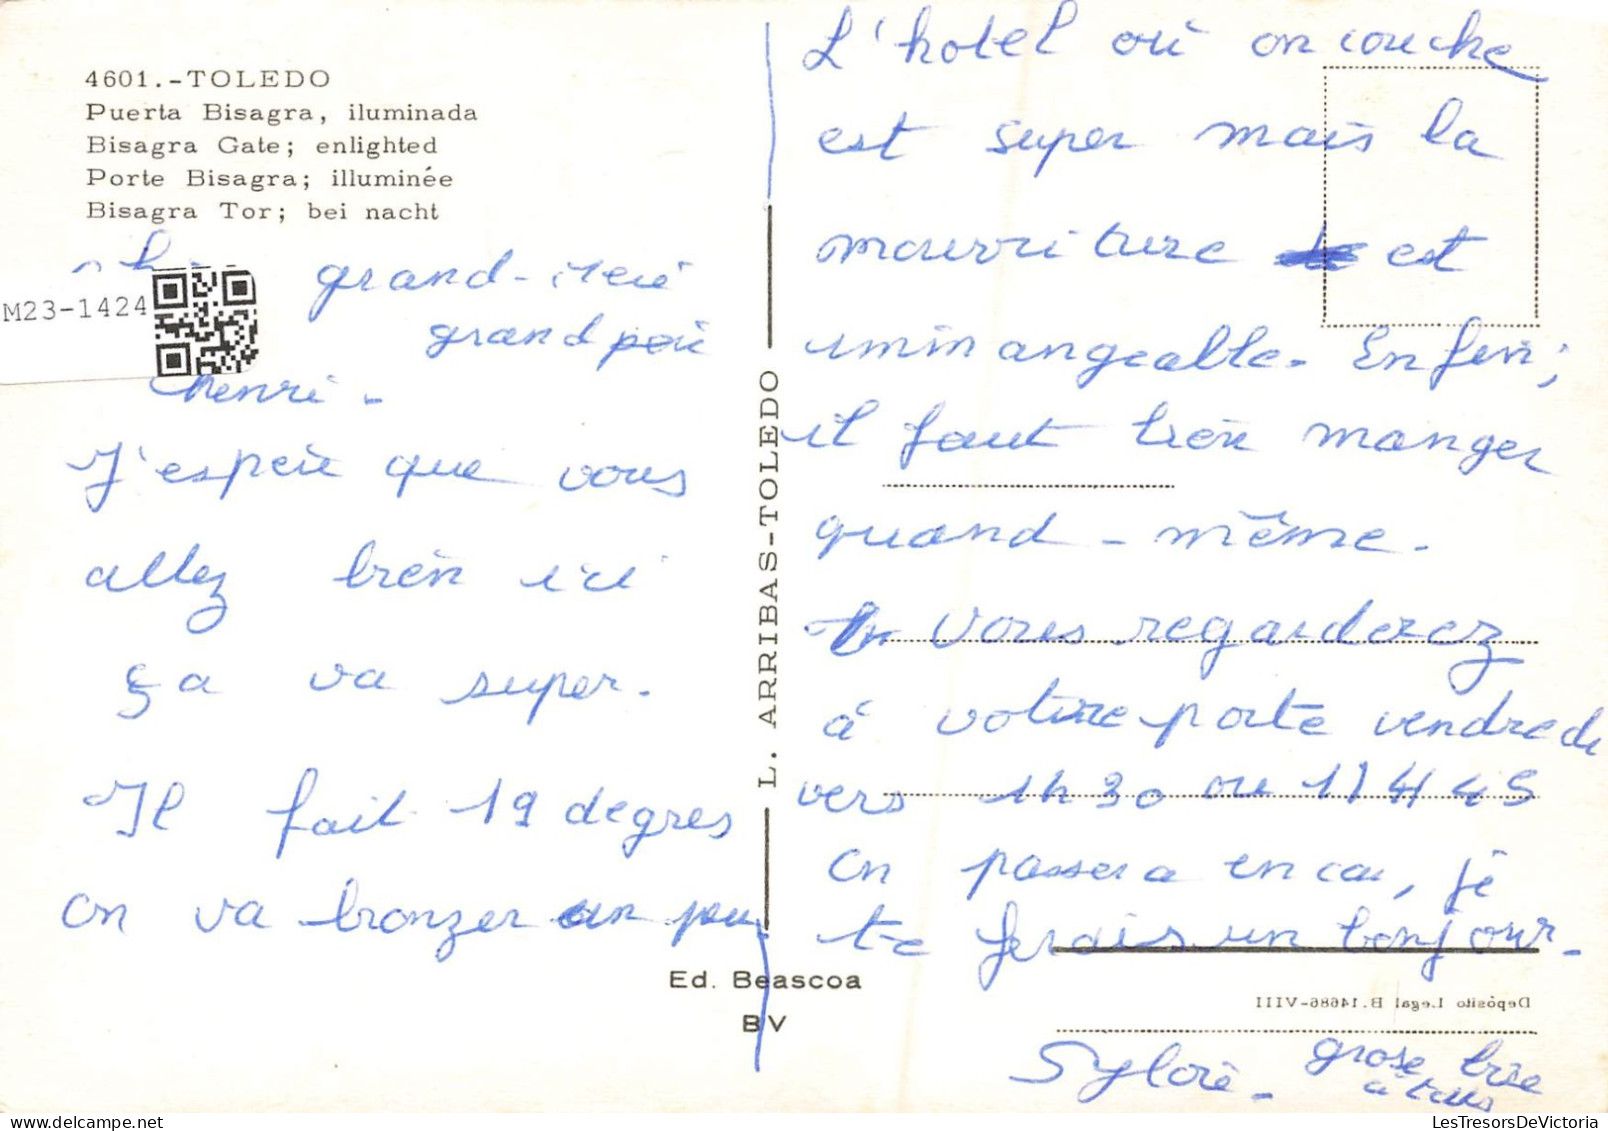 4601.-TOLEDO
Puerta Bisagra, iluminada
Bisagra Gate; enlighted
Porte Bisagra; illuminée
Bisagra Tor; bei nacht
M23-1424
grand-mère
grand père
henri -
J'espère que vous
allez bien ici
ça va super.
Il fait 19 degres
on va bronzer un peu
L. ARRIBAS-TOLEDO
Ed. Beascoa
BV
L'hotel où on couche
est super mais la
nourriture est
inmangeable. Enfin;
il faut bien manger
quand-même.
vous regarderez
à votre porte vendredi
vers 1h30 ou 1h45
on passera en car, je
te ferais un bonjour.
Depósito Legal B.14686-VIII
Sylvie. grose bise
a tous
LesTresorsDeVictoria.com